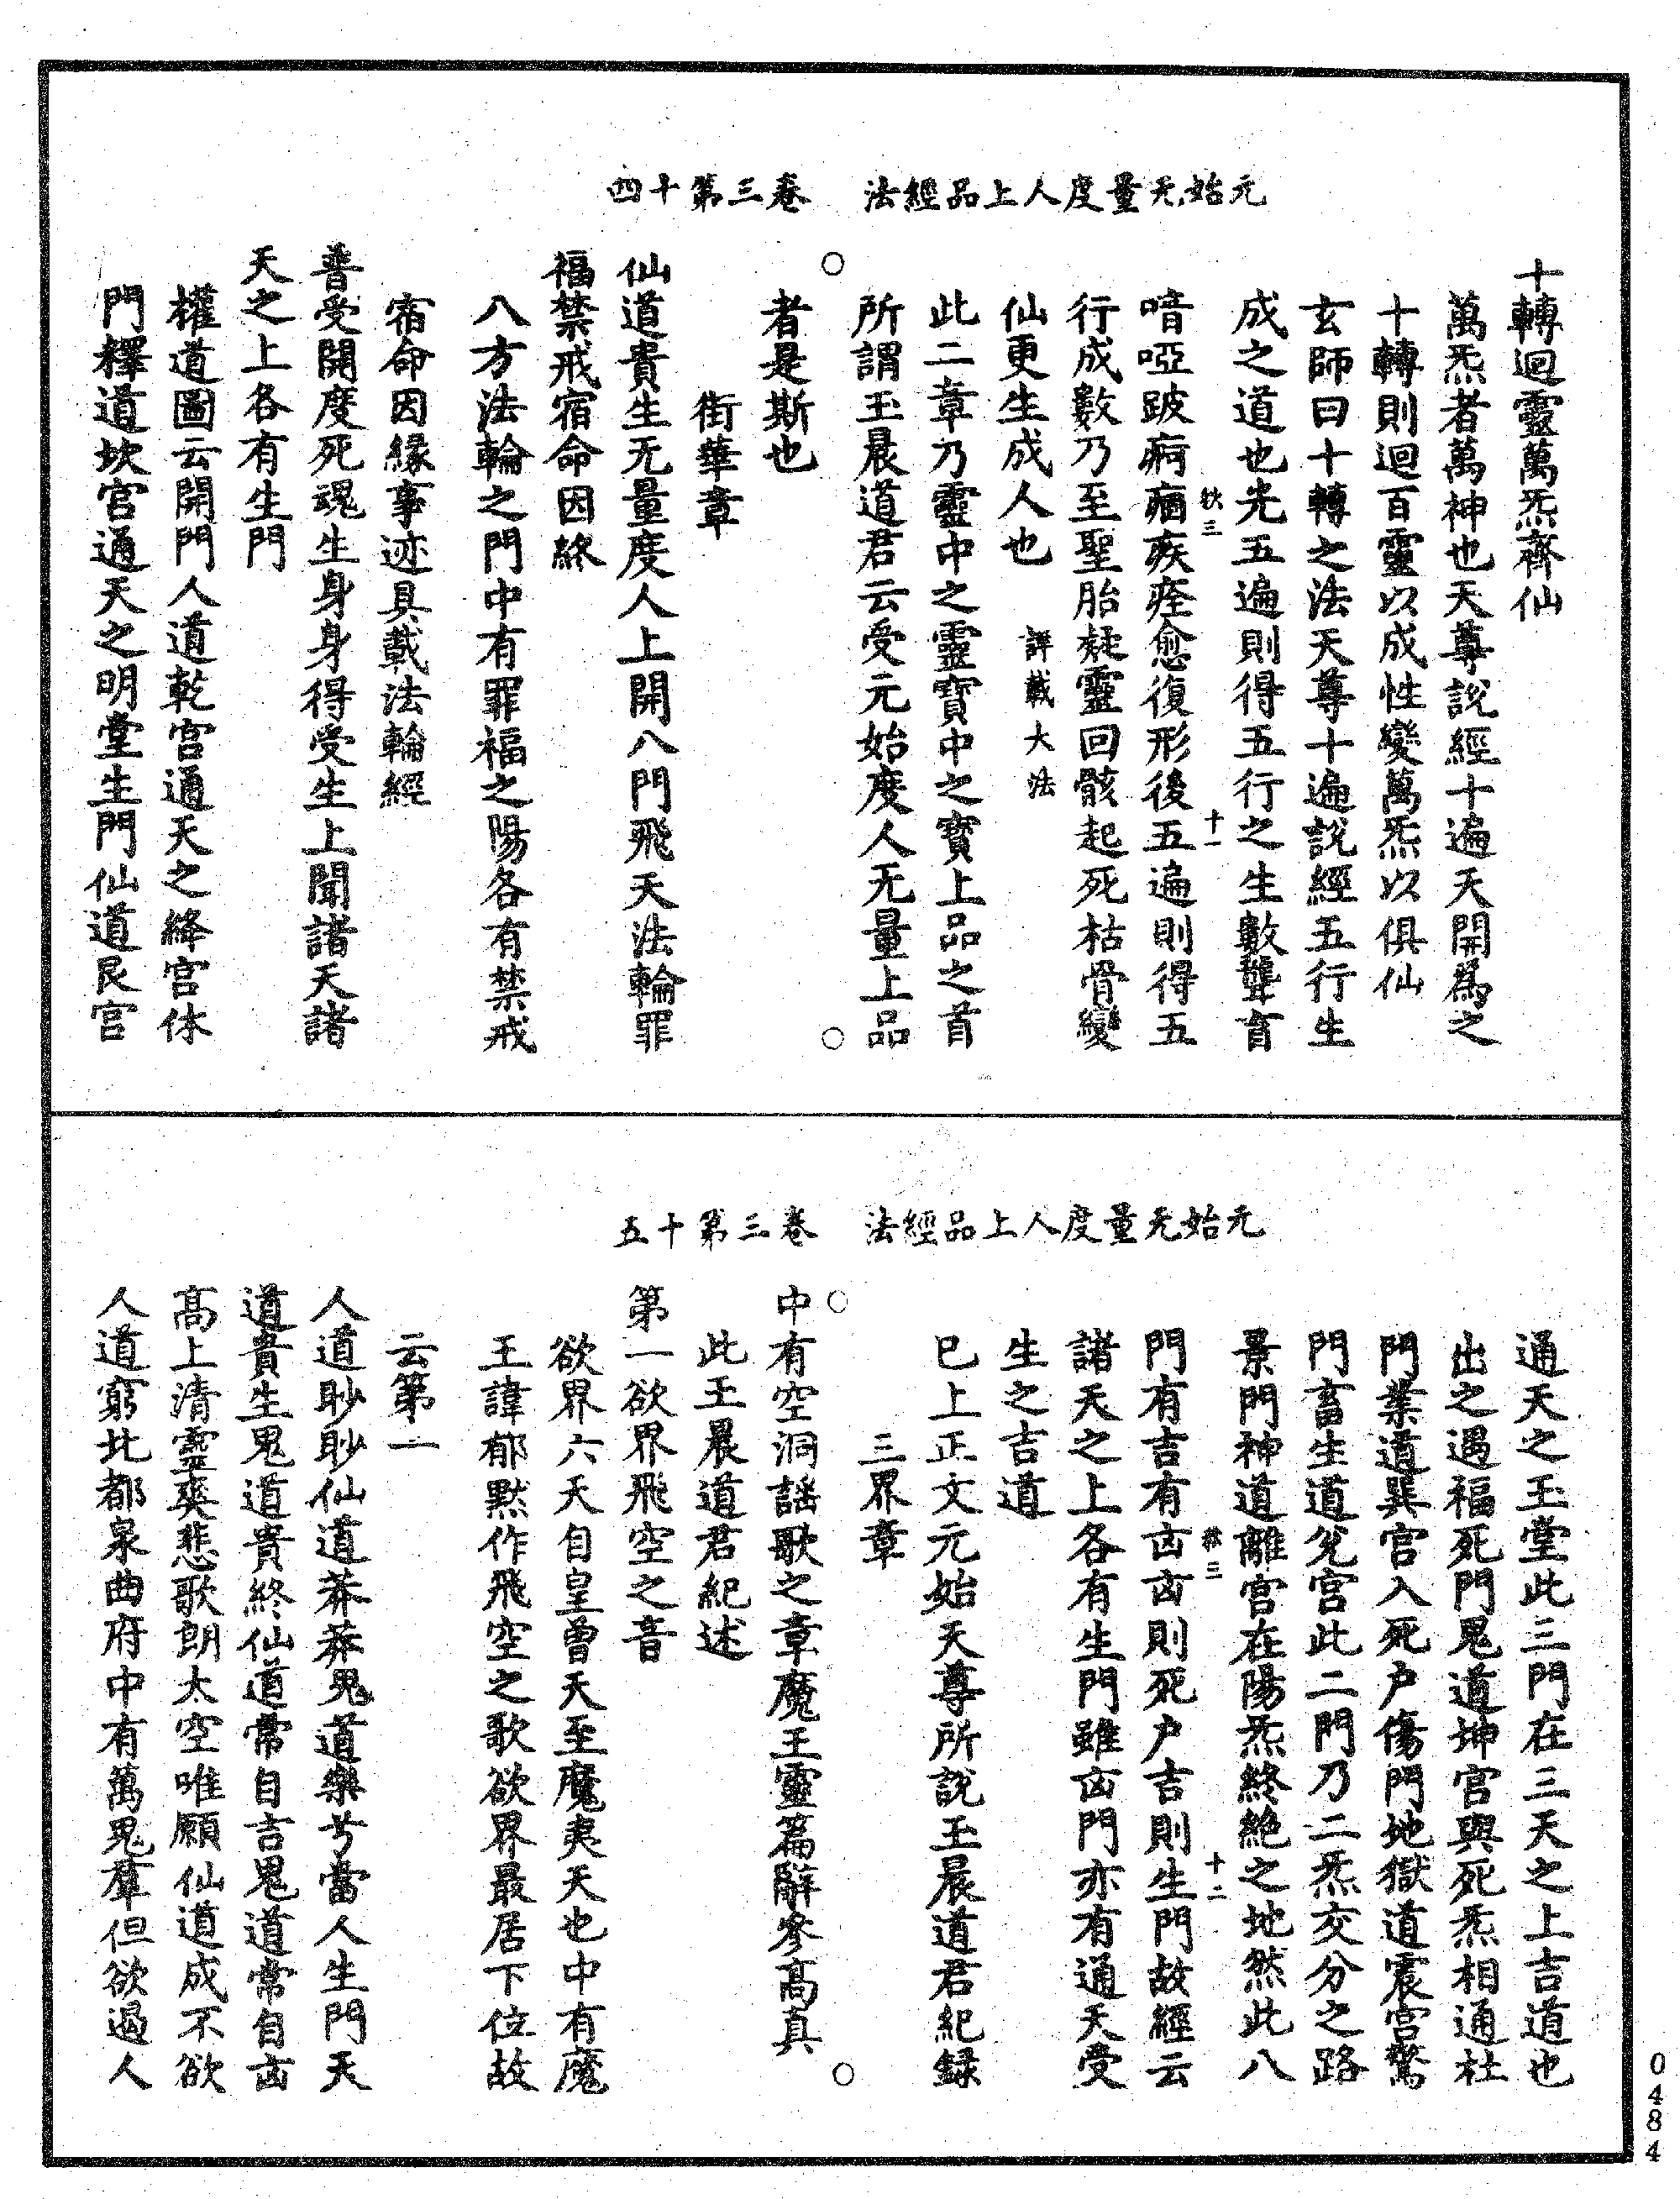 元始无量度人上品經法　卷三第十四
十轉迴靈萬炁齊仙
萬炁者萬神也天尊說經十遍天開爲之
十轉則迴百靈以成性變萬炁以俱仙
玄師曰十轉之法天尊十遍說經五行生
成之道也光五遍則得五行之生數聾盲
欲三　十一
喑啞跛痾痼疾痊愈復形後五遍則得五
行成數乃至聖胎凝靈回骸起死枯骨變
仙更生成人也 詳載大法
此二章乃靈中之靈寶中之寶上品之首
所謂玉晨道君云受元始度人无量上品
者是斯也
街華章
仙道貴生无量度人上開八門飛天法輪罪
福禁戒宿命因終
八方法輪之門中有罪福之陽各有禁戒
宿命因緣事迹具載法輪經
普受開度死魂生身身得受生上聞諸天諸
天之上各有生門
權道圖云開門人道乾宮通天之絳宮休
門釋道坎宮通天之明堂生門仙道艮宮
元始无量度人上品經法　卷三第十五
通天之玉堂此三門在三天之上吉道也
出之遇福死門鬼道坤宮與死炁相通杜
門業道巽宮入死户傷門地獄道震宮驚
門畜生道兌宮此二門乃二炁交分之路
景門神道離宮在陽炁終絶之地然此八
三　十二
門有吉有㐫㐫則死户吉則生門故經云
諸天之上各有生門雖㐫門亦有通天受
生之吉道
巳上正文元始天尊所說玉晨道君紀録
三界章
中有空洞謡歌之章魔王靈篇辭參髙真
此玉晨道君紀述
第一欲界飛空之音
欲界六天自皇曾天至魔夷天也中有魔
王諱郁黙作飛空之歌欲界最居下位故
云第一
人道眇眇仙道莽莽鬼道樂兮當人生門天
道貴生鬼道貴終仙道常自吉鬼道常自㐫
髙上清靈爽悲歌朗太空唯願仙道成不欲
人道窮北都泉曲府中有萬鬼羣但欲遏人
0484